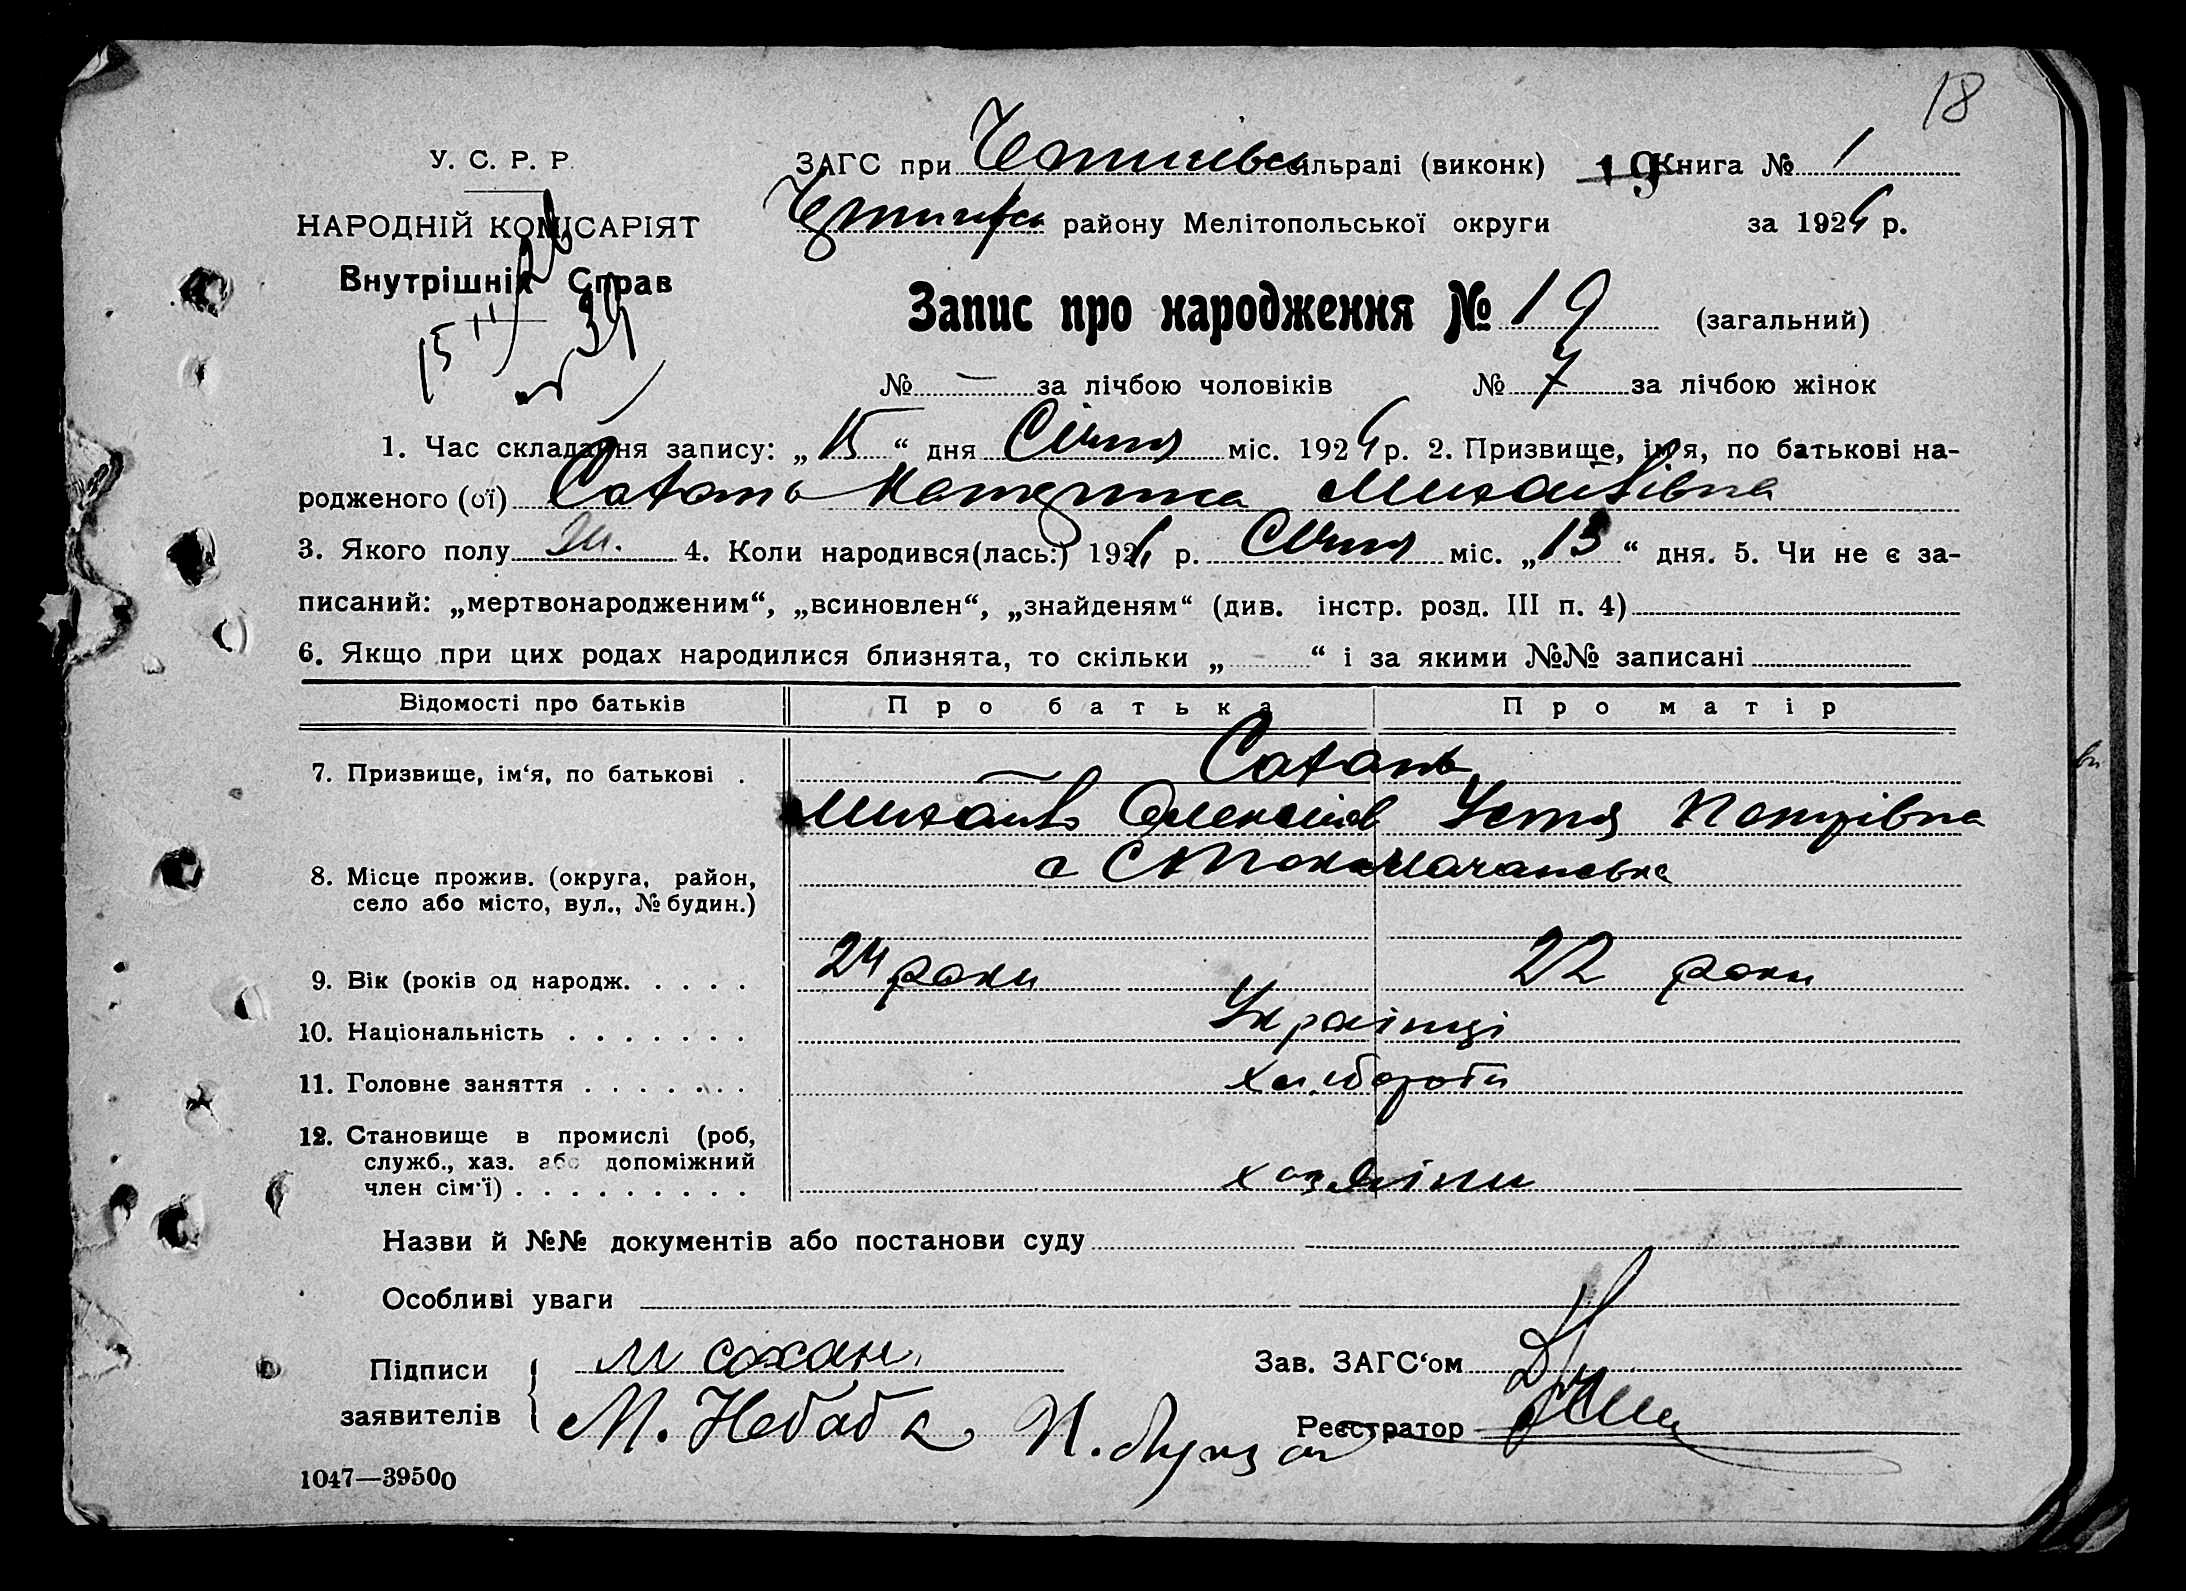 18
У. С. Р. Р.
НАРОДНІЙ КОМІСАРІЯТ
Внутрішніх Справ
ЗАГС при сільраді (виконк) 19 Книга № 1
району Мелітопольської округи за 192 р.
Запис про народження № 19 (загальний)
№ — за лічбою чоловіків № 7 за лічбою жінок
1. Час складання запису: „15“ дня Січня міс. 192 р. 2. Призвище, ім'я, по батькові на-
родженого (ої) Сахань Катерина Михайлівна
3. Якого полу ж. 4. Коли народився(лась:) 192 р. Січня міс. „13“ дня. 5. Чи не є за-
писаний: „мертвонародженим“, „всиновлен“, „знайденям“ (див. інстр. розд. III п. 4)
6. Якщо при цих родах народилися близнята, то скільки „ “ і за якими №№ записані
Відомості про батьків Про батька Про матір
7. Призвище, ім‘я, по батькові . Сахань
Михайло Олексіїв Устя Петрівна
8. Місце прожив. (округа, район, с Стокопачанська
село або місто, вул., № будин.)
9. Вік (років од народж. . . . . 24 роки 22 роки
10. Національність . . . . . . . Українці
11. Головне заняття . . . . . . . хлібороби
12. Становище в промислі (роб,
служб., хаз. або допоміжний
член сім'ї) . . . . . . . . . хазяїни
Назви й №№ документів або постанови суду
Особливі уваги
Підписи М Сахан Зав. ЗАГС‘ом
заявителів М. Небаба Реєстратор
1047—39500